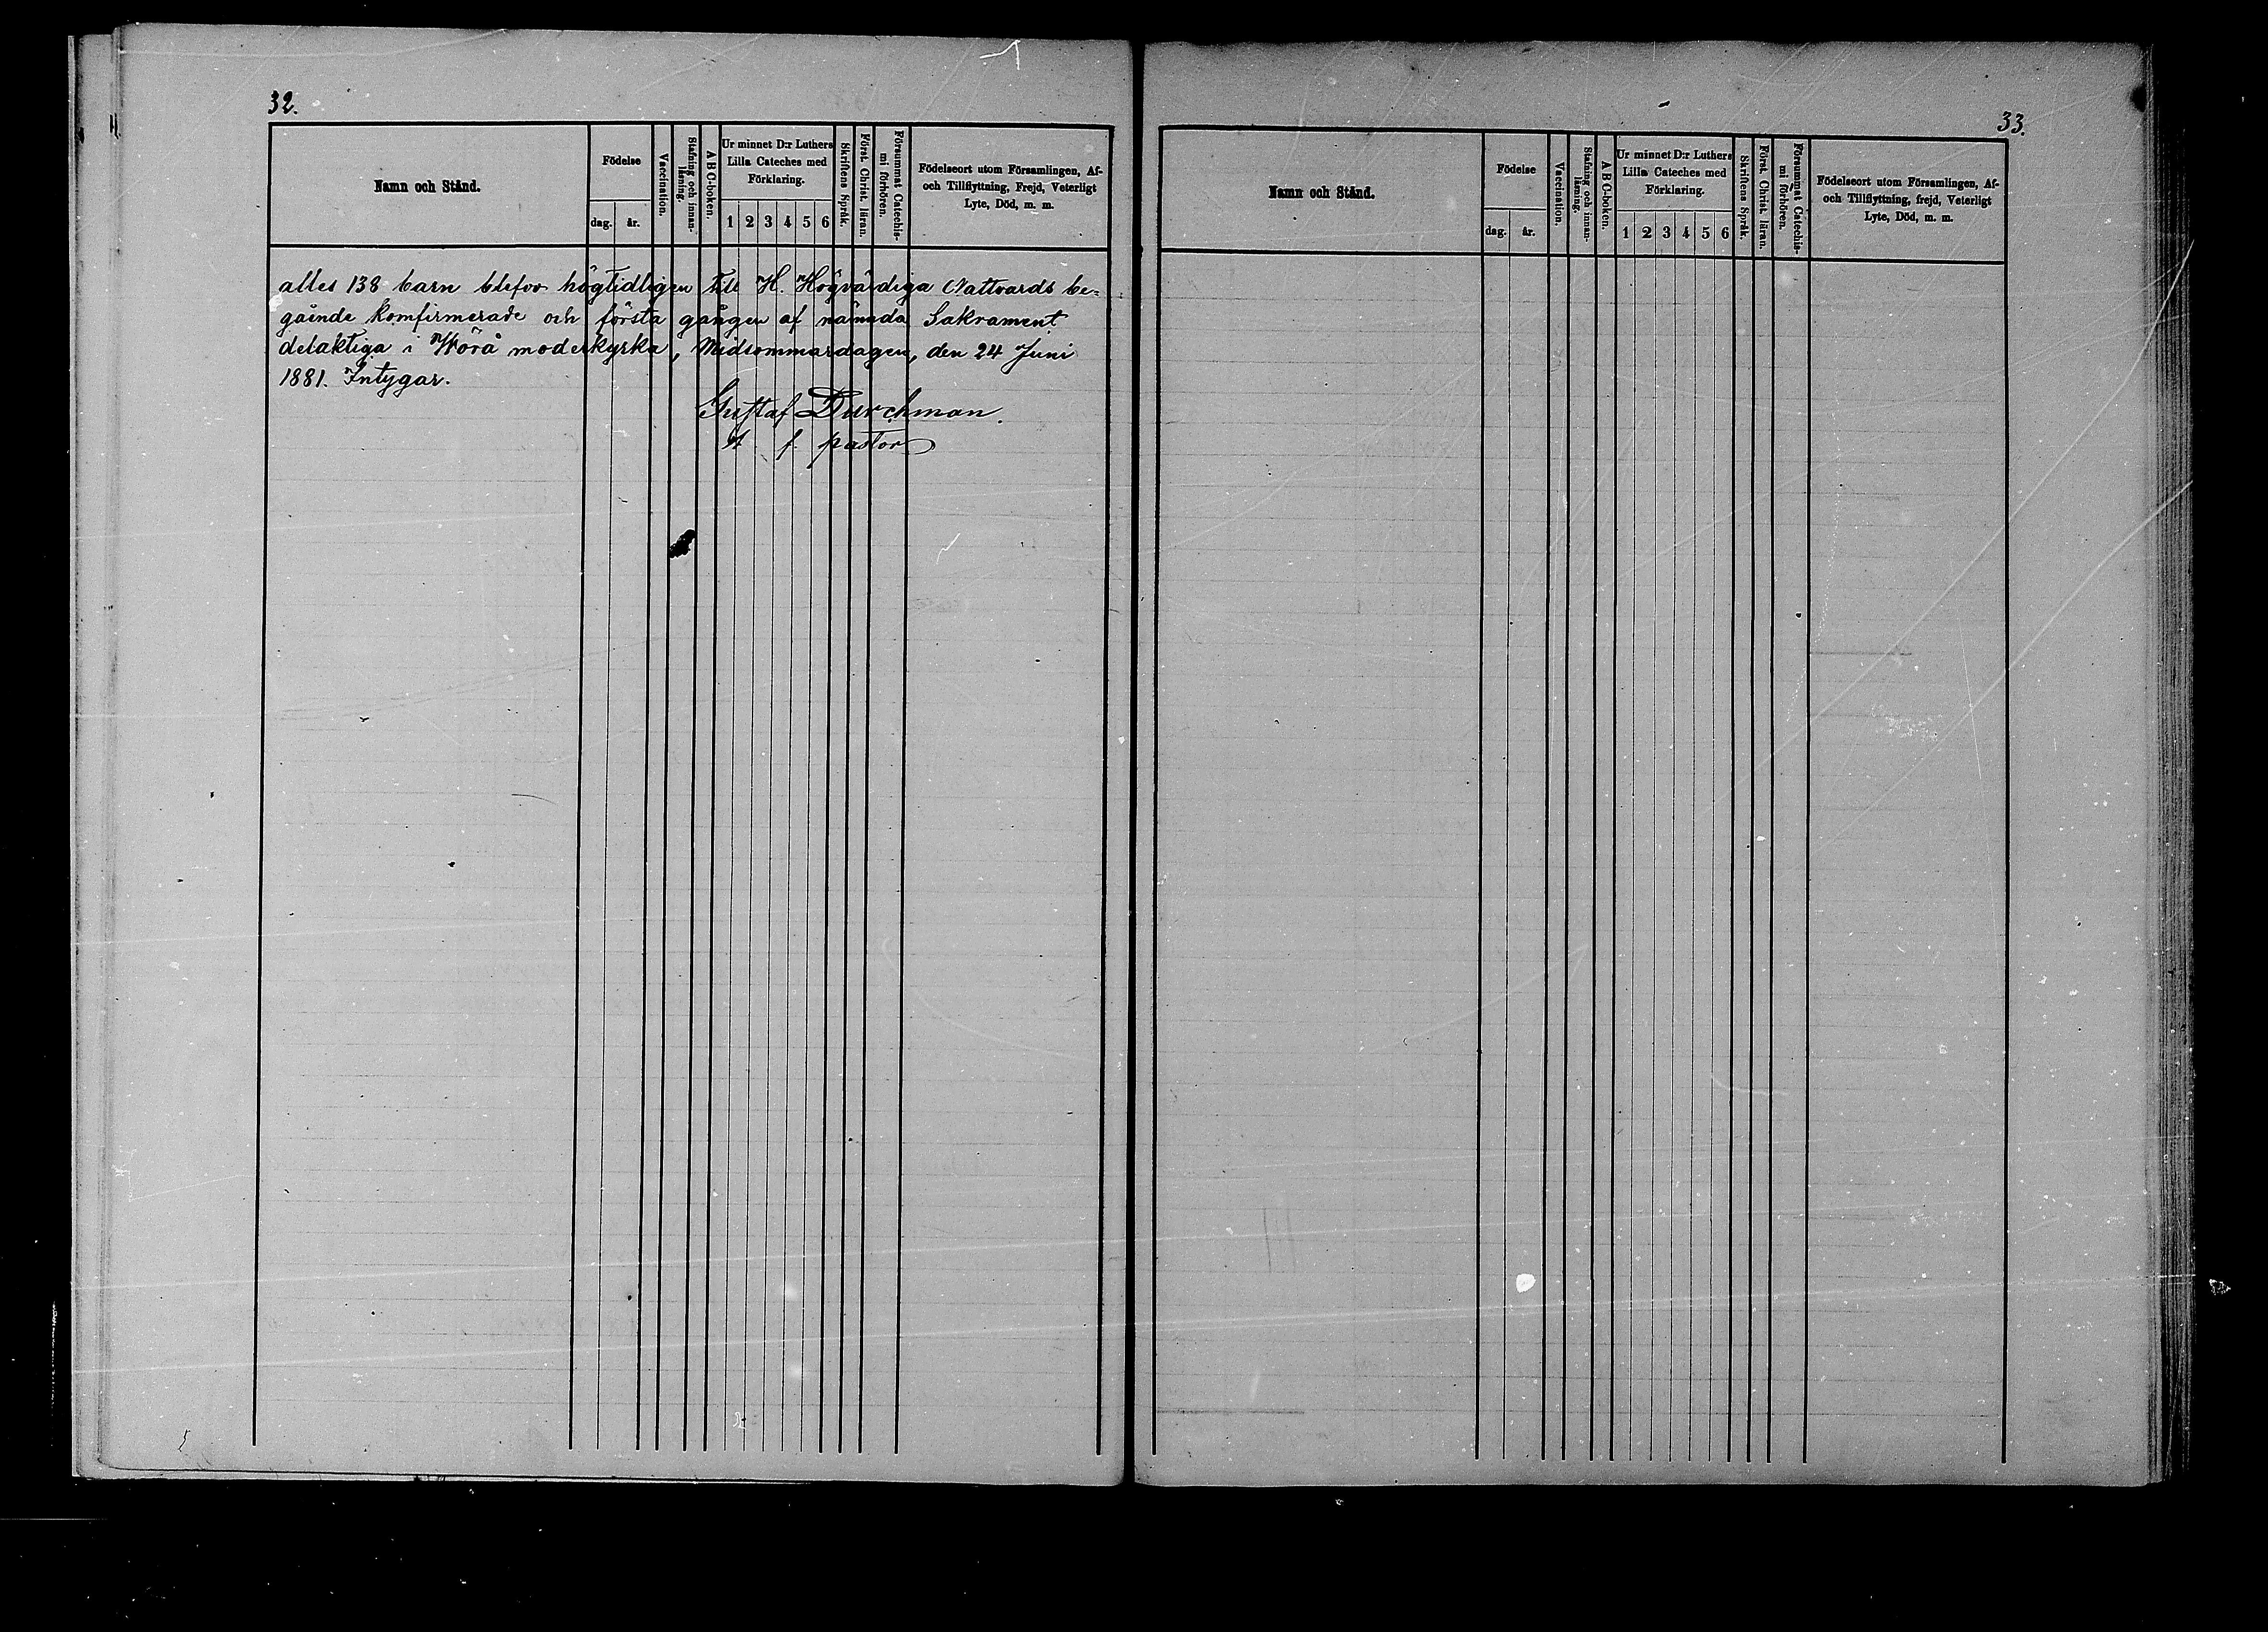 32.
Namn och Stånd.
Födelse
dag. år.
Vaccination.
Stafning och innan-
läsning.
A B C-boken.
Ur minnet D:r Luthers
Lilla Cateches med
Förklaring.
1 2 3 4 5 6
Skriftens Språk.
Först. Christ. läran.
Försummat Catechis-
mi förhören.
Födelseort utom Församlingen, Af-
och Tillflyttning, Frejd, Veterligt
Lyte, Död, m. m.
alles 138 barn blefvo högtidligen till H. Högvärdiga Nattvards be-
gående konfirmerade och första gången af nämnda Sakrament
delaktiga i Wörå moderkyrka, Midsommardagen, den 24 Juni
1881. Intygar.
Gustaf Durchman.
f. pastor
33.
Namn och Stånd.
Födelse
dag. år.
Vaccination.
Stafning och innan-
läsning.
A B C-boken.
Ur minnet D:r Luthers
Lilla Cateches med
Förklaring.
1 2 3 4 5 6
Skriftens Språk.
Först. Christ. läran.
Försummat Catechis-
mi förhören.
Födelseort utom Församlingen, Af-
och Tillflyttning, frejd, Veterligt
Lyte, Död, m. m.